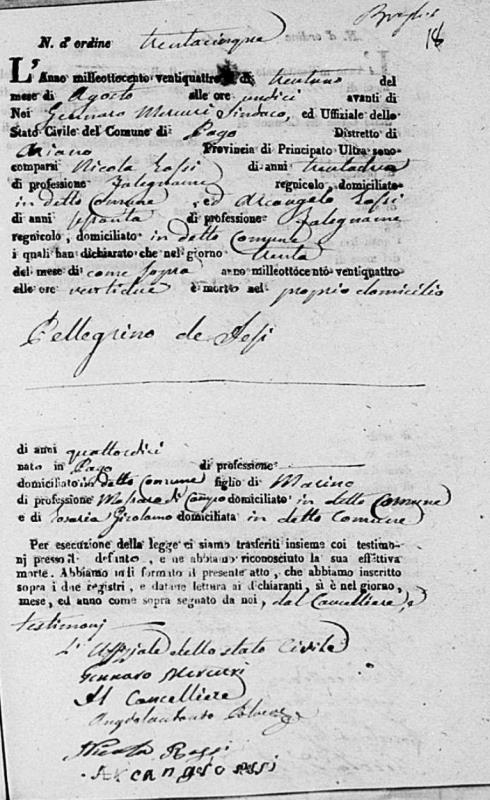 N. d' ordine trentacinque
18
L' Anno milleottocento ventiquattro il dì trentuno del
mese di Agosto alle ore undici avanti di
Noi Gennaro Mercuri Sindaco, ed Uffiziale dello
Stato Civile del Comune di Pago Distretto di
Ariano Provincia di Principato Ultra sono
comparsi Nicola Rossi di anni trentadue
di professione Falegname regnicolo, domiciliato
in detto Comune, ed Arcangelo Rossi
di anni sessanta di professione Falegname
regnicolo, domiciliato in detto Comune
i quali han dichiarato che nel giorno trenta
del mese di come sopra anno milleottocento ventiquattro
alle ore ventidue è morto nel proprio domicilio
Pellegrino de
di anni quattordici
nato in Pago di professione
domiciliato in detto Comune figlio di Marino
di professione Massaro di Campo domiciliato in detto Comune
e di Girolamo domiciliata in detto Comune
Per esecuzione della legge ci siamo trasferiti insieme coi testimo-
nj presso il defunto, e ne abbiamo riconosciuto la sua effettiva
morte. Abbiamo indi formato il presente atto, che abbiamo inscritto
sopra i due registri, e datane lettura ai dichiaranti, si è nel giorno,
mese, ed anno come sopra segnato da noi, dal Cancelliere, e
testimonj
L' Uffiziale dello stato Civile
Gennaro Mercuri
Il Cancelliere
Nicola Rossi
Arcangelo rossi